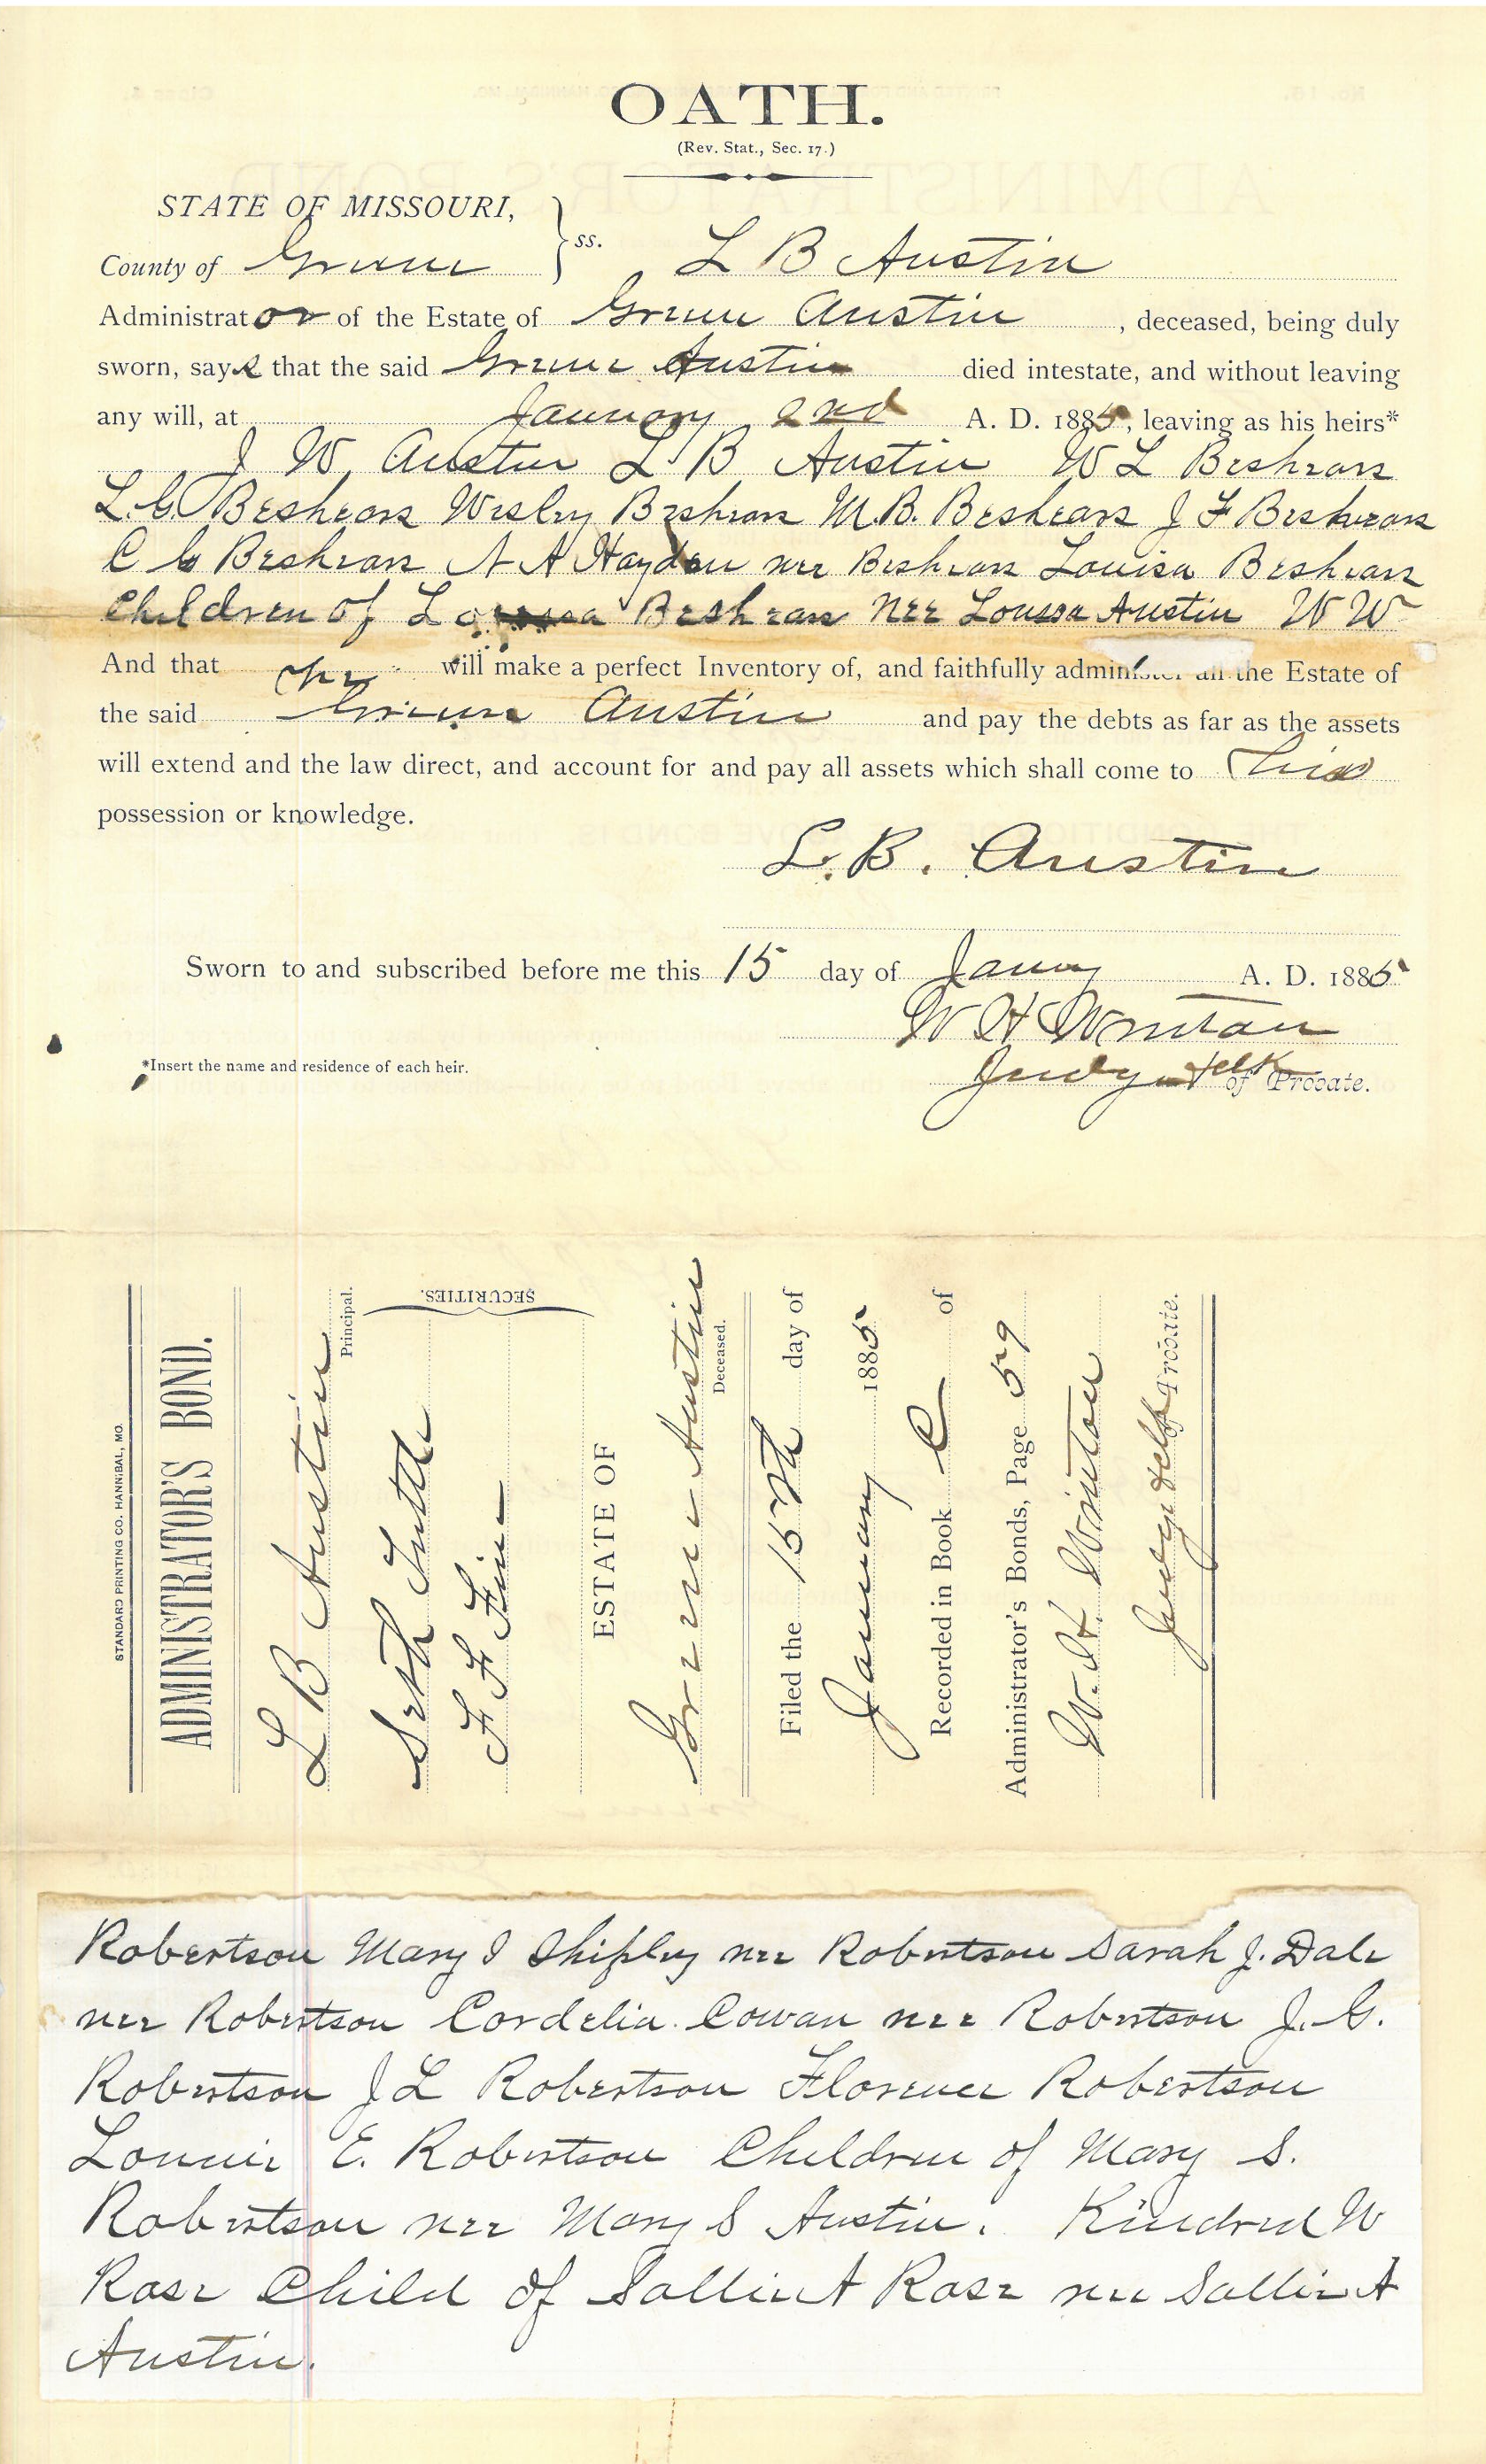 OATH.
(Rev. Stat., Sec. 17.)
STATE OF MISSOURI,
County of Greene } ss. L B Austin
Administrator of the Estate of Greene Austin, deceased, being duly
sworn, says that the said Greene Austin died intestate, and without leaving
any will, at January 2nd A. D. 1885, leaving as his heirs*
J W Austin L B Austin W L Beshears
L. G. Beshears Wesley Beshears M. B. Beshears J F Beshears
C C Beshears N A Hayden nee Beshears Louisa Beshears
Children of Beshears nee Loussa Austin W W
And that he will make a perfect Inventory of, and faithfully administer all the Estate of
the said Greene Austin and pay the debts as far as the assets
will extend and the law direct, and account for and pay all assets which shall come to his
possession or knowledge.
L. B. Austin
Sworn to and subscribed before me this 15 day of Januy A. D. 1885
W H Winton
Judge & clk of Probate.
*Insert the name and residence of each heir.
STANDARD PRINTING CO. HANNIBAL, MO.
ADMINISTRATOR'S BOND.
L B Austin
Principal.
Seth Tuttle
F F Fine
SECURITIES.
ESTATE OF
Greene Austin
Deceased.
Filed the 15th day of
January 1885
Recorded in Book C of
Administrator's Bonds, Page 59
W. H. Winton
Judge & clk Probate.
Robertson Mary I Shipley nee Robertson Sarah J. Dale
nee Robertson Cordelia Cowan nee Robertson J. G.
Robertson J L Robertson Florence Robertson
Lonnie E. Robertson Children of Mary S.
Robertson nee Mary S Austin. Kindred W
Rose Child of Sallie A Rose nee Sallie A
Austin.